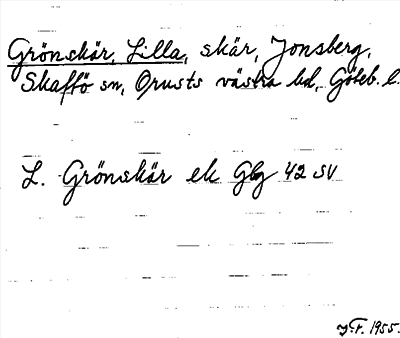 Grönskär, Lilla, skär, Jonsberg,
Skaftö sn, Orusts västra hd, Göteb. l.
L. Grönskär ek Gbg 42 SV
J.F. 1955.